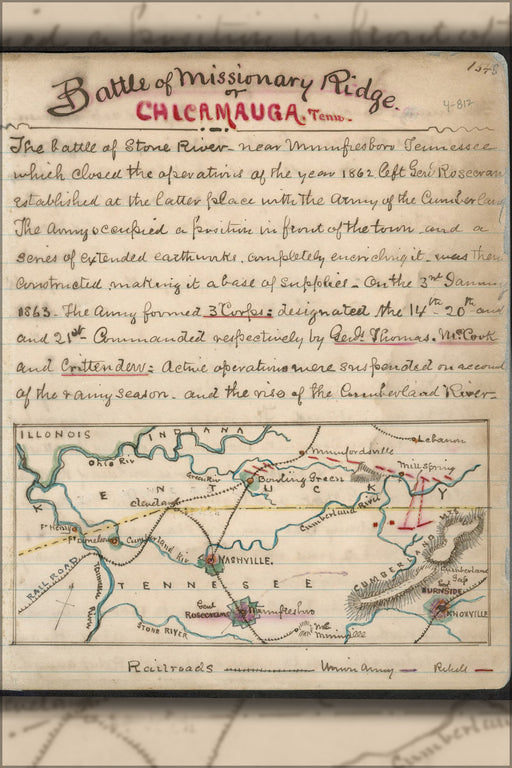 1575
Battle of Missionary Ridge.
or
CHICAMAUGA. Tenn.
4-812
The battle of Stone River near Murmfresboro Tennessee
which closed the operations of the year 1862 left Genl Rosecran
established at the latter place with the Army of the Cumberland
The Army occupied a position in front of the town, and a
series of extended earthworks, completely encircling it, was then
constructed, making it a base of supplies - On the 3rd January
1863. The Army formed 3 Corps: designated the 14th 20th and
and 21st Commanded respectively by Genls Thomas. McCook
and Crittenden: Active operations were suspended on account
of the rainy season. and the rise of the Cumberland River-
ILLINOIS
INDIANA
Lebanon
Ohio Riv
Munfordsville
Green Riv
Bowling Green
Mill Spring
KENTUCKY
Cumberland River
Ft Henry
Ft Donelson
Cumberland Riv
NASHVILLE.
CUMBERLAND
Cumberland Gap
RAILROAD
Tennessee River
TENNESSEE
Genl BURNSIDE
Genl Rosecrans
Murmfresboro
KNOXVILLE
STONE RIVER
Railroads Union Army Rebell